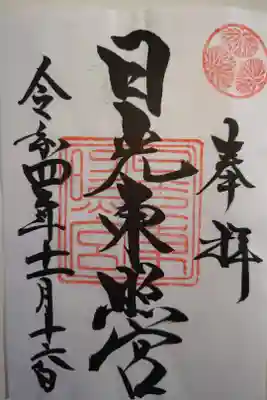 奉拝
日光東照宮
令和四年十一月十六日